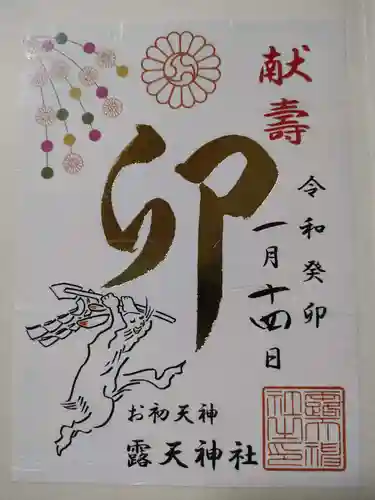 献壽
卯
令和癸卯
一月十四日
お初天神
露天神社
露天神社之印